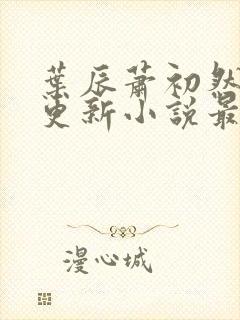 葉辰蕭初然
更新小說最
漫心城